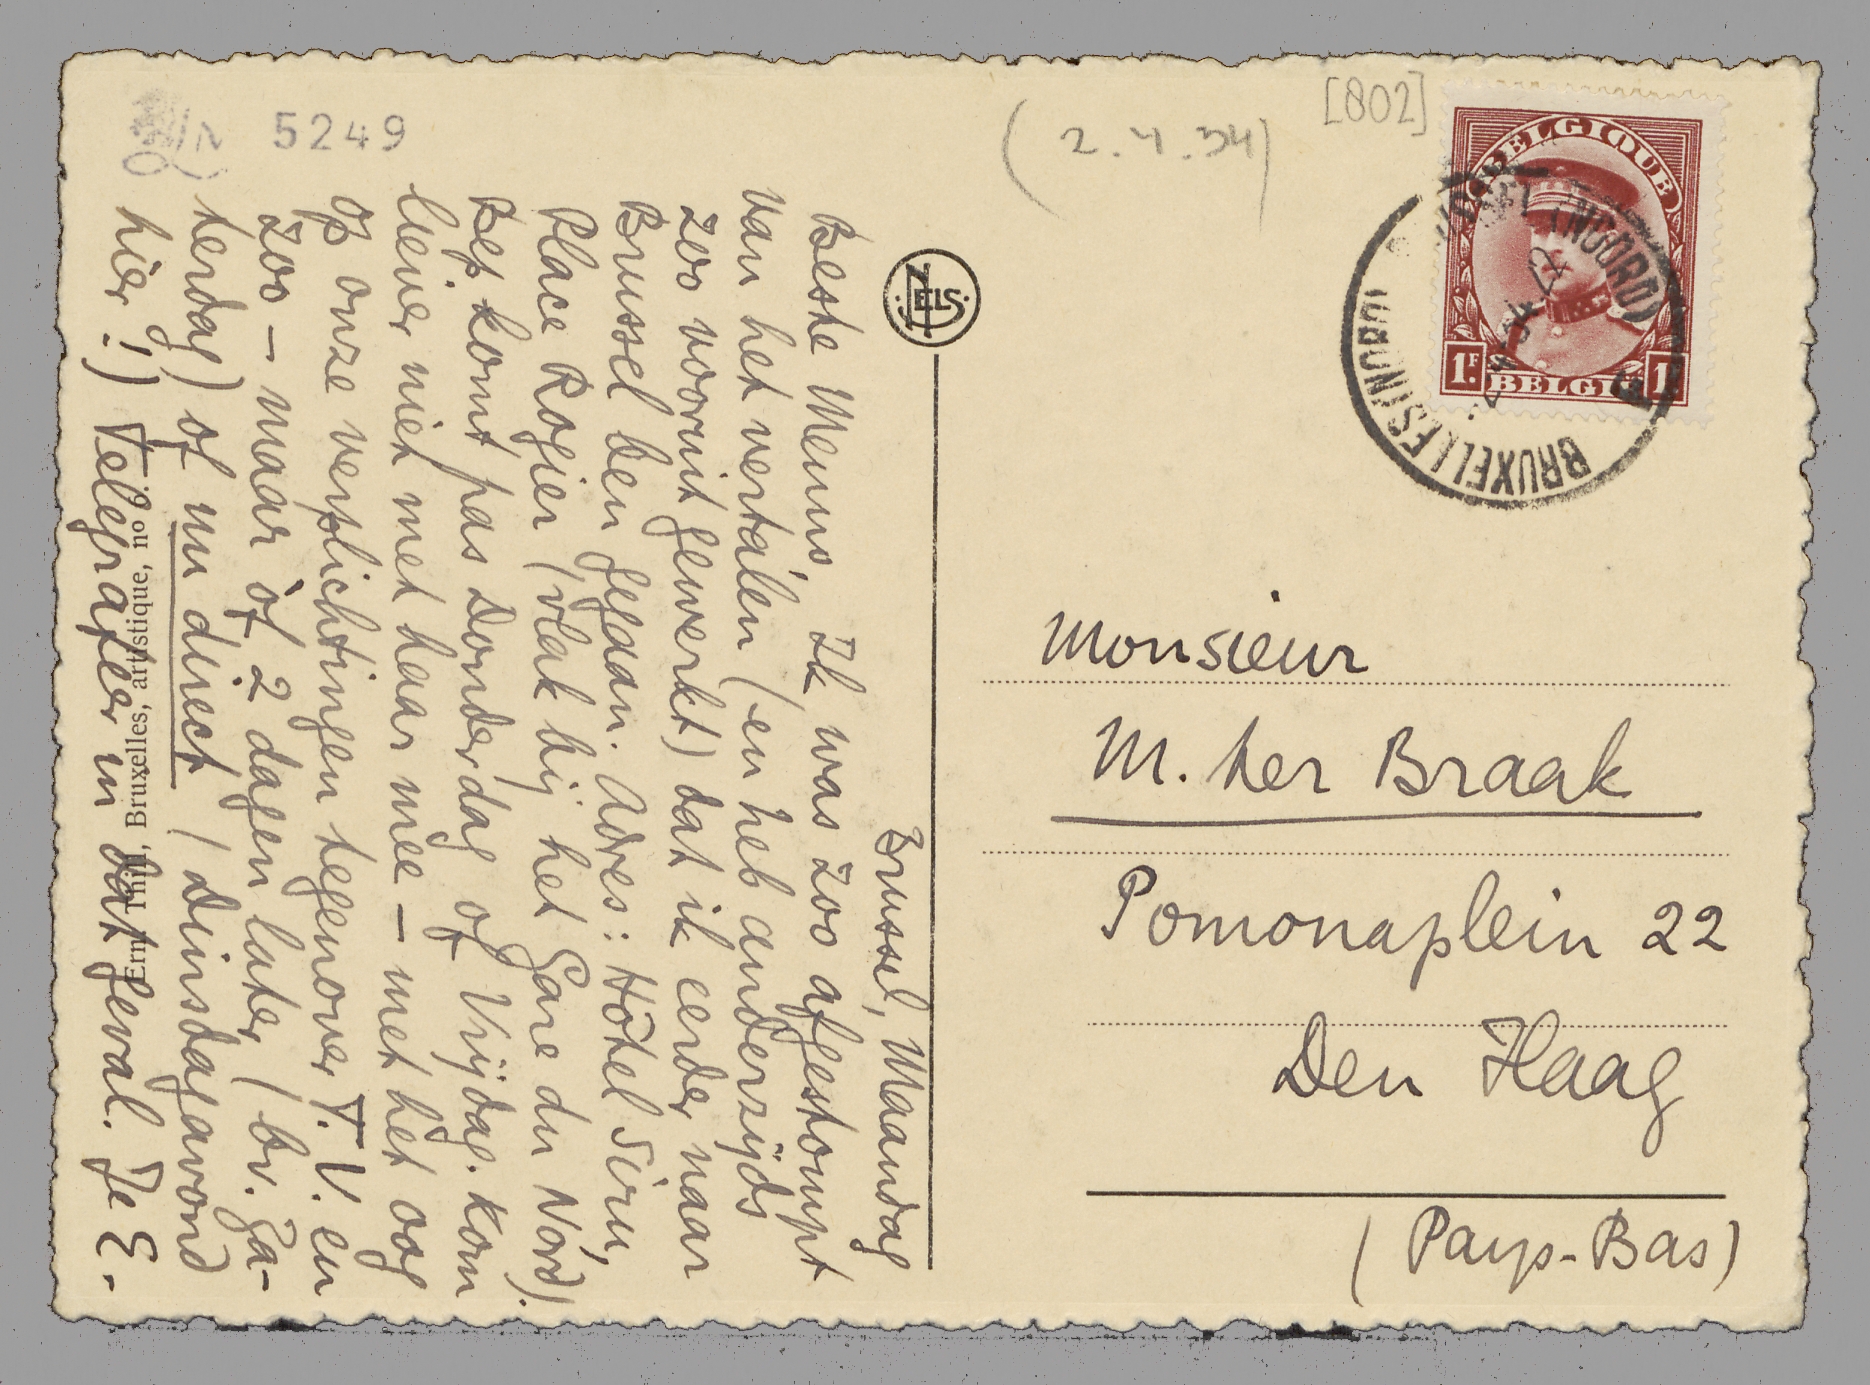 5249
(2.4.34)
[802]
BELGIQUE
1F
1F
BELGIË
BRUXELLES (NORD)
(NOORD)
Brussel, Maandag
Beste Menno, Ik was zoo afgestompt
van het vertalen (en heb anderzijds
zoo vooruit gewerkt) dat ik eerder naar
Brussel ben gegaan. Adres: Hôtel Siru,
Place Rogier (vlak bij het Gare du Nord).
Bep komt pas Donderdag of Vrijdag. Kom
liever niet met haar mee – met het oog
op onze verplichtingen tegenover T. V. en
zoo – maar òf 2 dagen later (bv. Za-
terdag) of nu direct (Dinsdagavond
hier!) Telegrafeer in dat geval. Je E.-
Ern. Thill, Bruxelles, artistique, no
NELS
Monsieur
M. ter Braak
Pomonaplein 22
Den Haag
(Pays-Bas)